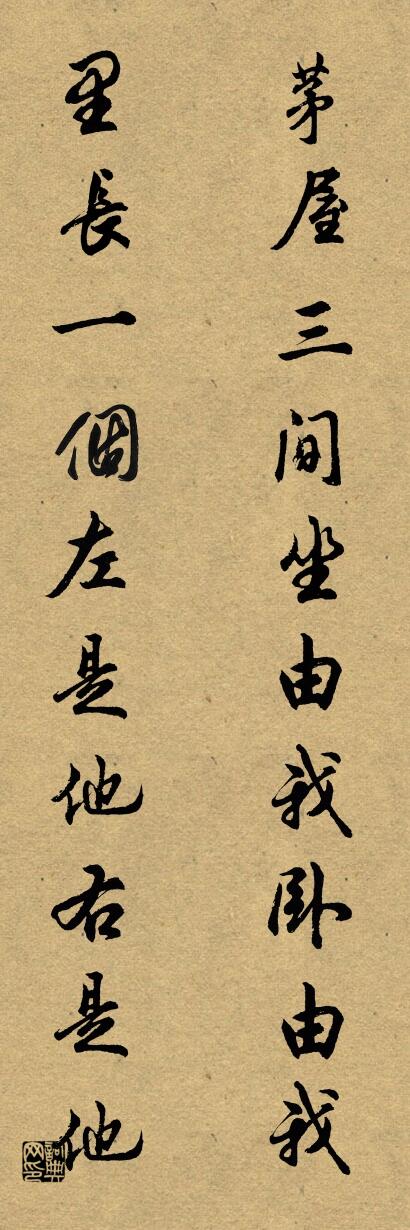 茅屋三间坐由我卧由我
里長一個左是他右是他